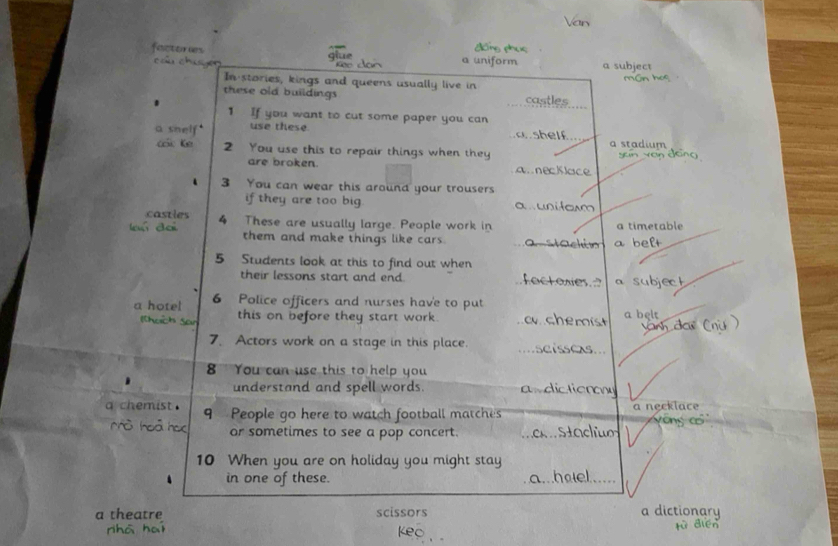 Văn
factories
glue
keo dán
đồng phục
a uniform
a subject
môn học
In stories, kings and queens usually live in
these old buildings
castles
1 If you want to cut some paper you can
use these
a shelf
a shelf
cái kệ
2 You use this to repair things when they
are broken.
a necklace
a stadium
sân vận động
3 You can wear this around your trousers
if they are too big
a uniform
castles
lâu đài
4 These are usually large. People work in
them and make things like cars.
a stadium
a timetable
a belt
5 Students look at this to find out when
their lessons start and end.
factories
a subject
a hotel
khách sạn
6 Police officers and nurses have to put
this on before they start work
a chemist
a belt
7. Actors work on a stage in this place.
scissors
8 You can use this to help you
understand and spell words.
a dictionary
a chemist
9 People go here to watch football matches
or sometimes to see a pop concert.
a stadium
a necklace
vòng cổ
10 When you are on holiday you might stay
in one of these.
a hotel
a theatre
nhà hát
scissors
kéo
a dictionary
từ điển